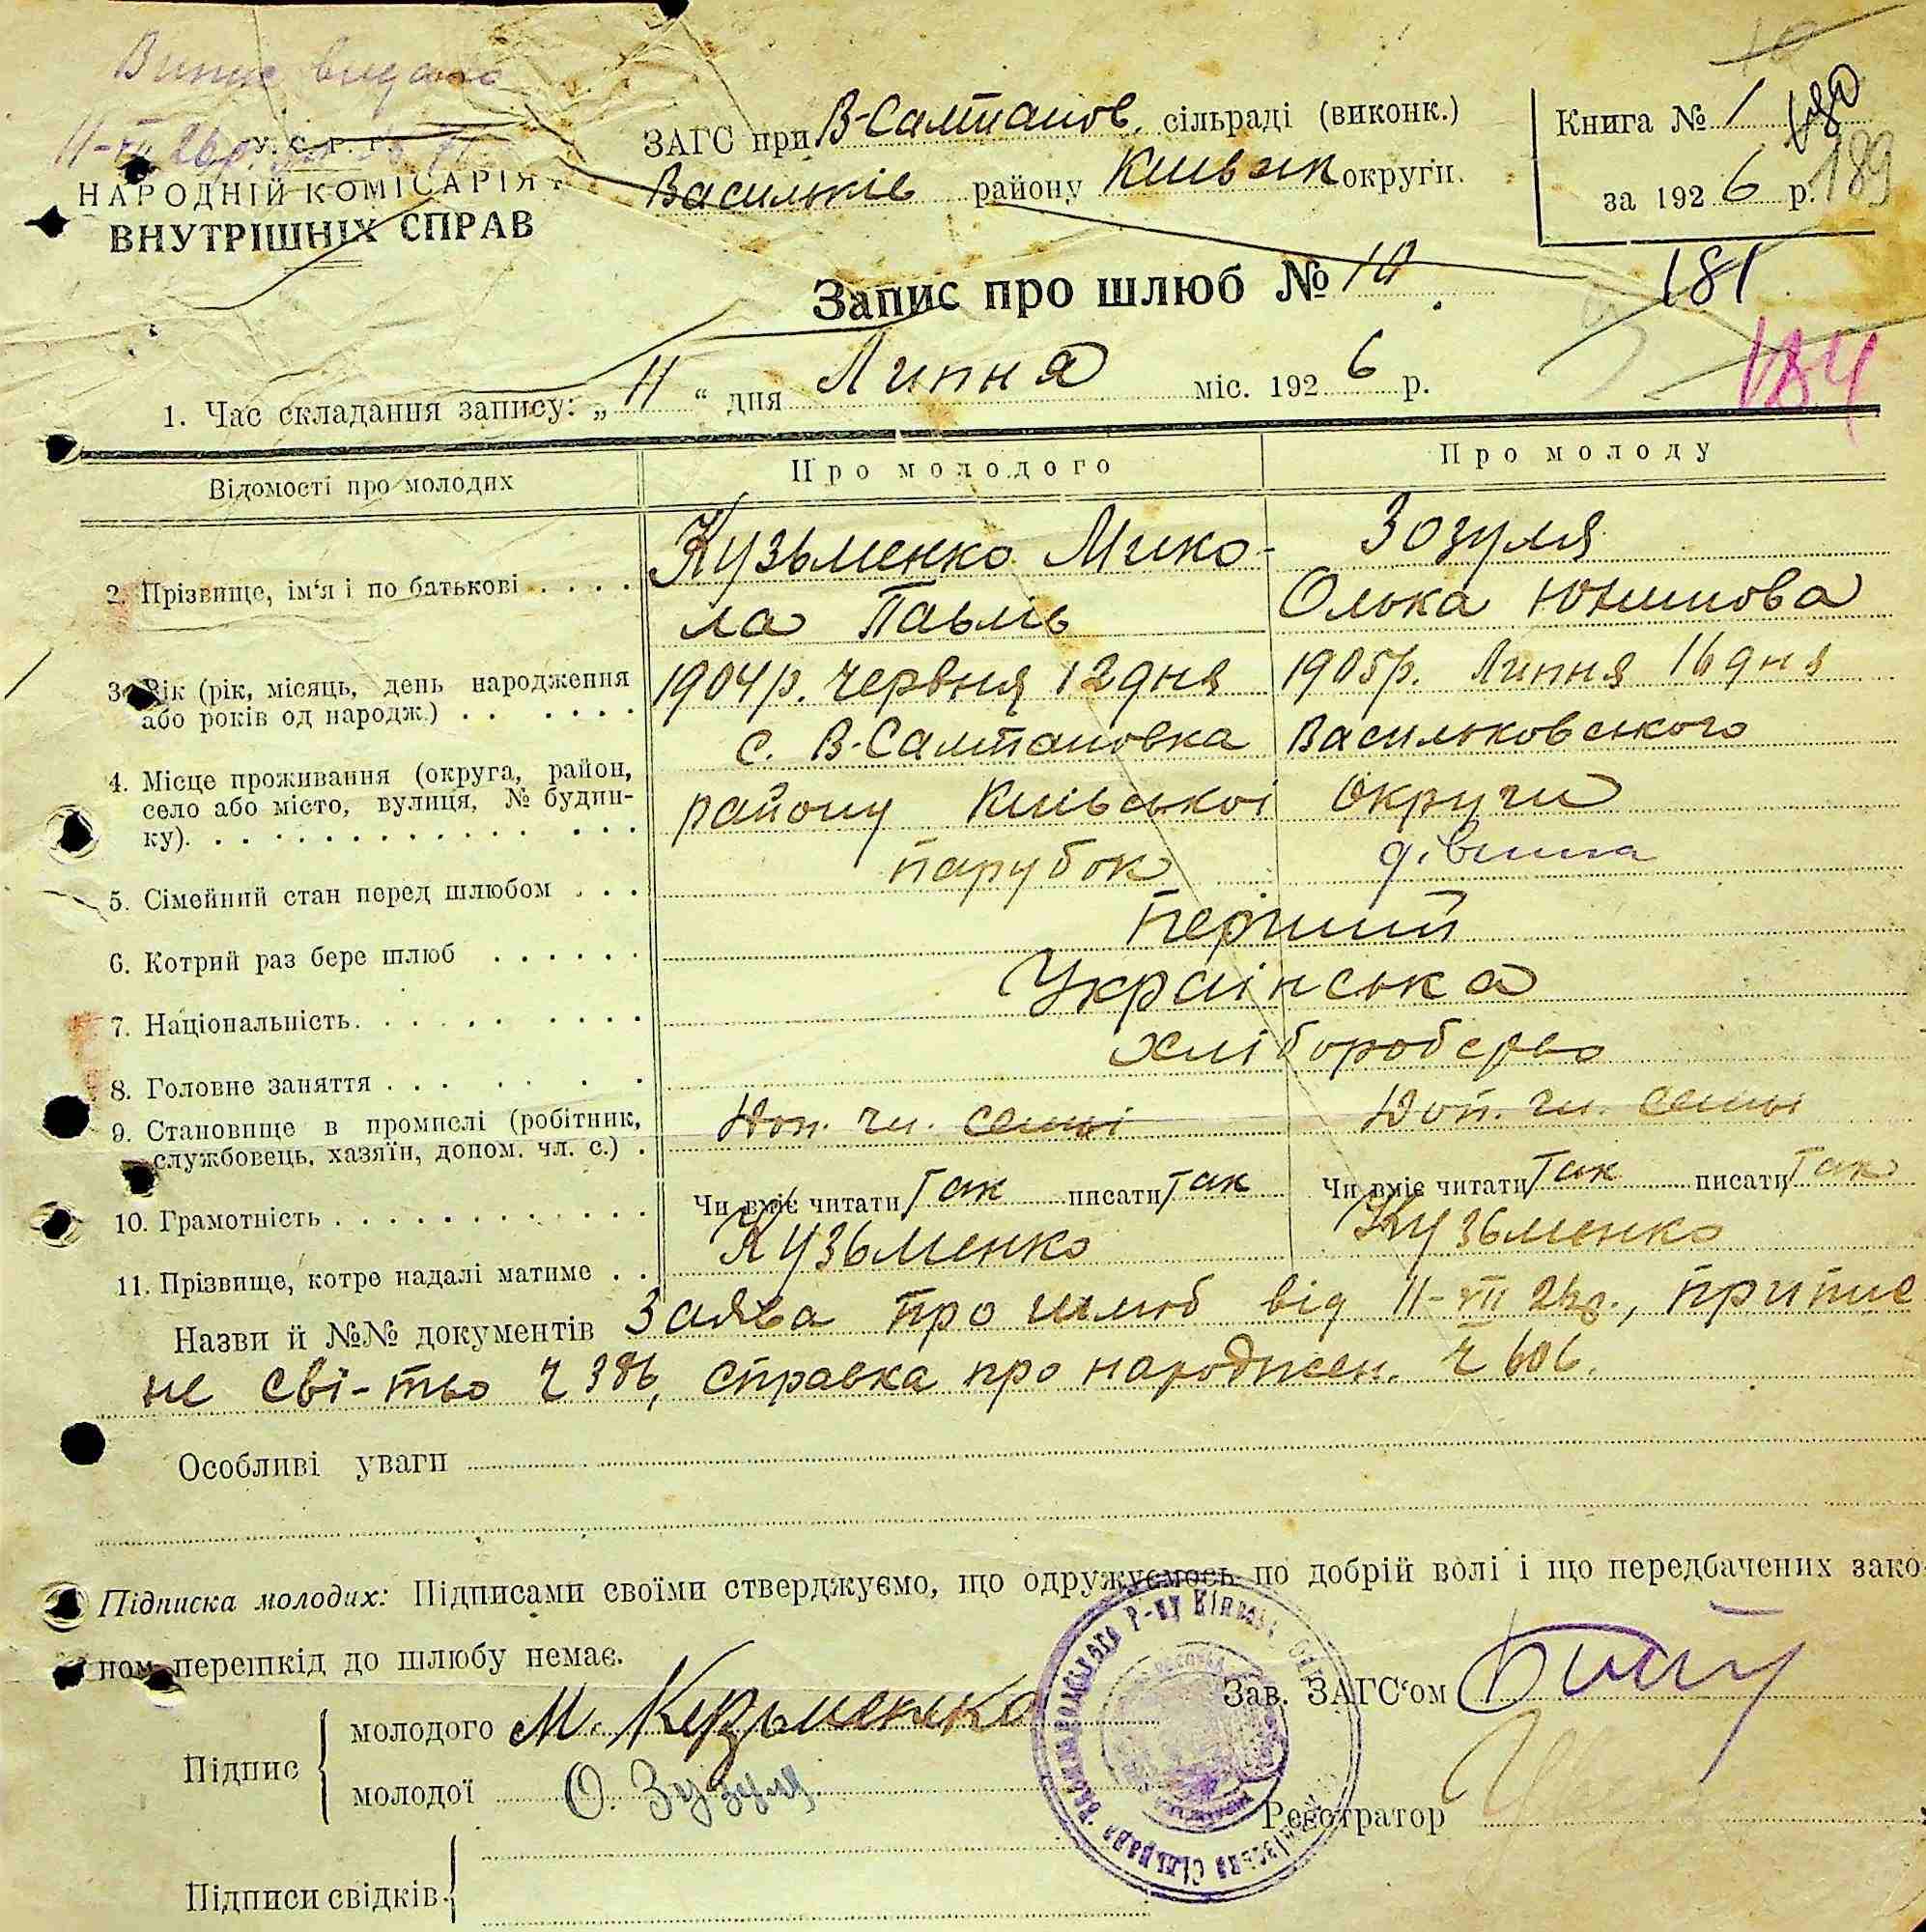 Випис видано
11-VII 26р.
У. С. Р. Р.
НАРОДНІЙ КОМІСАРІЯТ
ВНУТРІШНІХ СПРАВ
ЗАГС при В-Салтанов. сільраді (виконк.)
Васильків району Київськ округи.
Книга № 1
за 1926 р.
10
180
189
181
184
Запис про шлюб № 10
1. Час складання запису: „11“ дня Липня міс. 1926 р.
Відомості про молодих
Про молодого
Про молоду
2. Прізвище, ім'я і по батькові . . . .
Кузьменко Мико-
ла Павлів
Зозуля
Олька Юхимова
3. Вік (рік, місяць, день народження
або років од народж.) . . . . . .
1904р. Червня 12 дня
1905р. Липня 16 дня
4. Місце проживання (округа, район,
село або місто, вулиця, № будин-
ку). . . . . . . . . . . . . . .
с. В-Салтановка Васильковського
району Київської Округи
5. Сімейний стан перед шлюбом . . .
парубок
дівчина
6. Котрий раз бере шлюб . . . . . .
Перший
7. Національність. . . . . . . . . .
Українська
8. Головне заняття . . . . . .
хліборобство
9. Становище в промислі (робітник,
службовець, хазяїн, допом. чл. с.) .
Доп. чл. семьі
Доп. чл. семьі
10. Грамотність . . . . . . . . . . . .
Чи вміє читати Так писати Так
Чи вміє читати Так писати Так
11. Прізвище, котре надалі матиме . .
Кузьменко
Кузьменко
Назви й №№ документів Заява про шлюб від 11-VII 26р., припис
не сві-тво Ч 386, справка про народжен. Ч 606.
Особливі уваги
Підписка молодих: Підписами своїми стверджуємо, що одружуємось по добрій волі і що передбачених зако-
ном перешкід до шлюбу немає.
Підпис
молодого М. Кузьменко
молодої О. Зузуля
Зав. ЗАГС'ом
Реєстратор
Підписи свідків